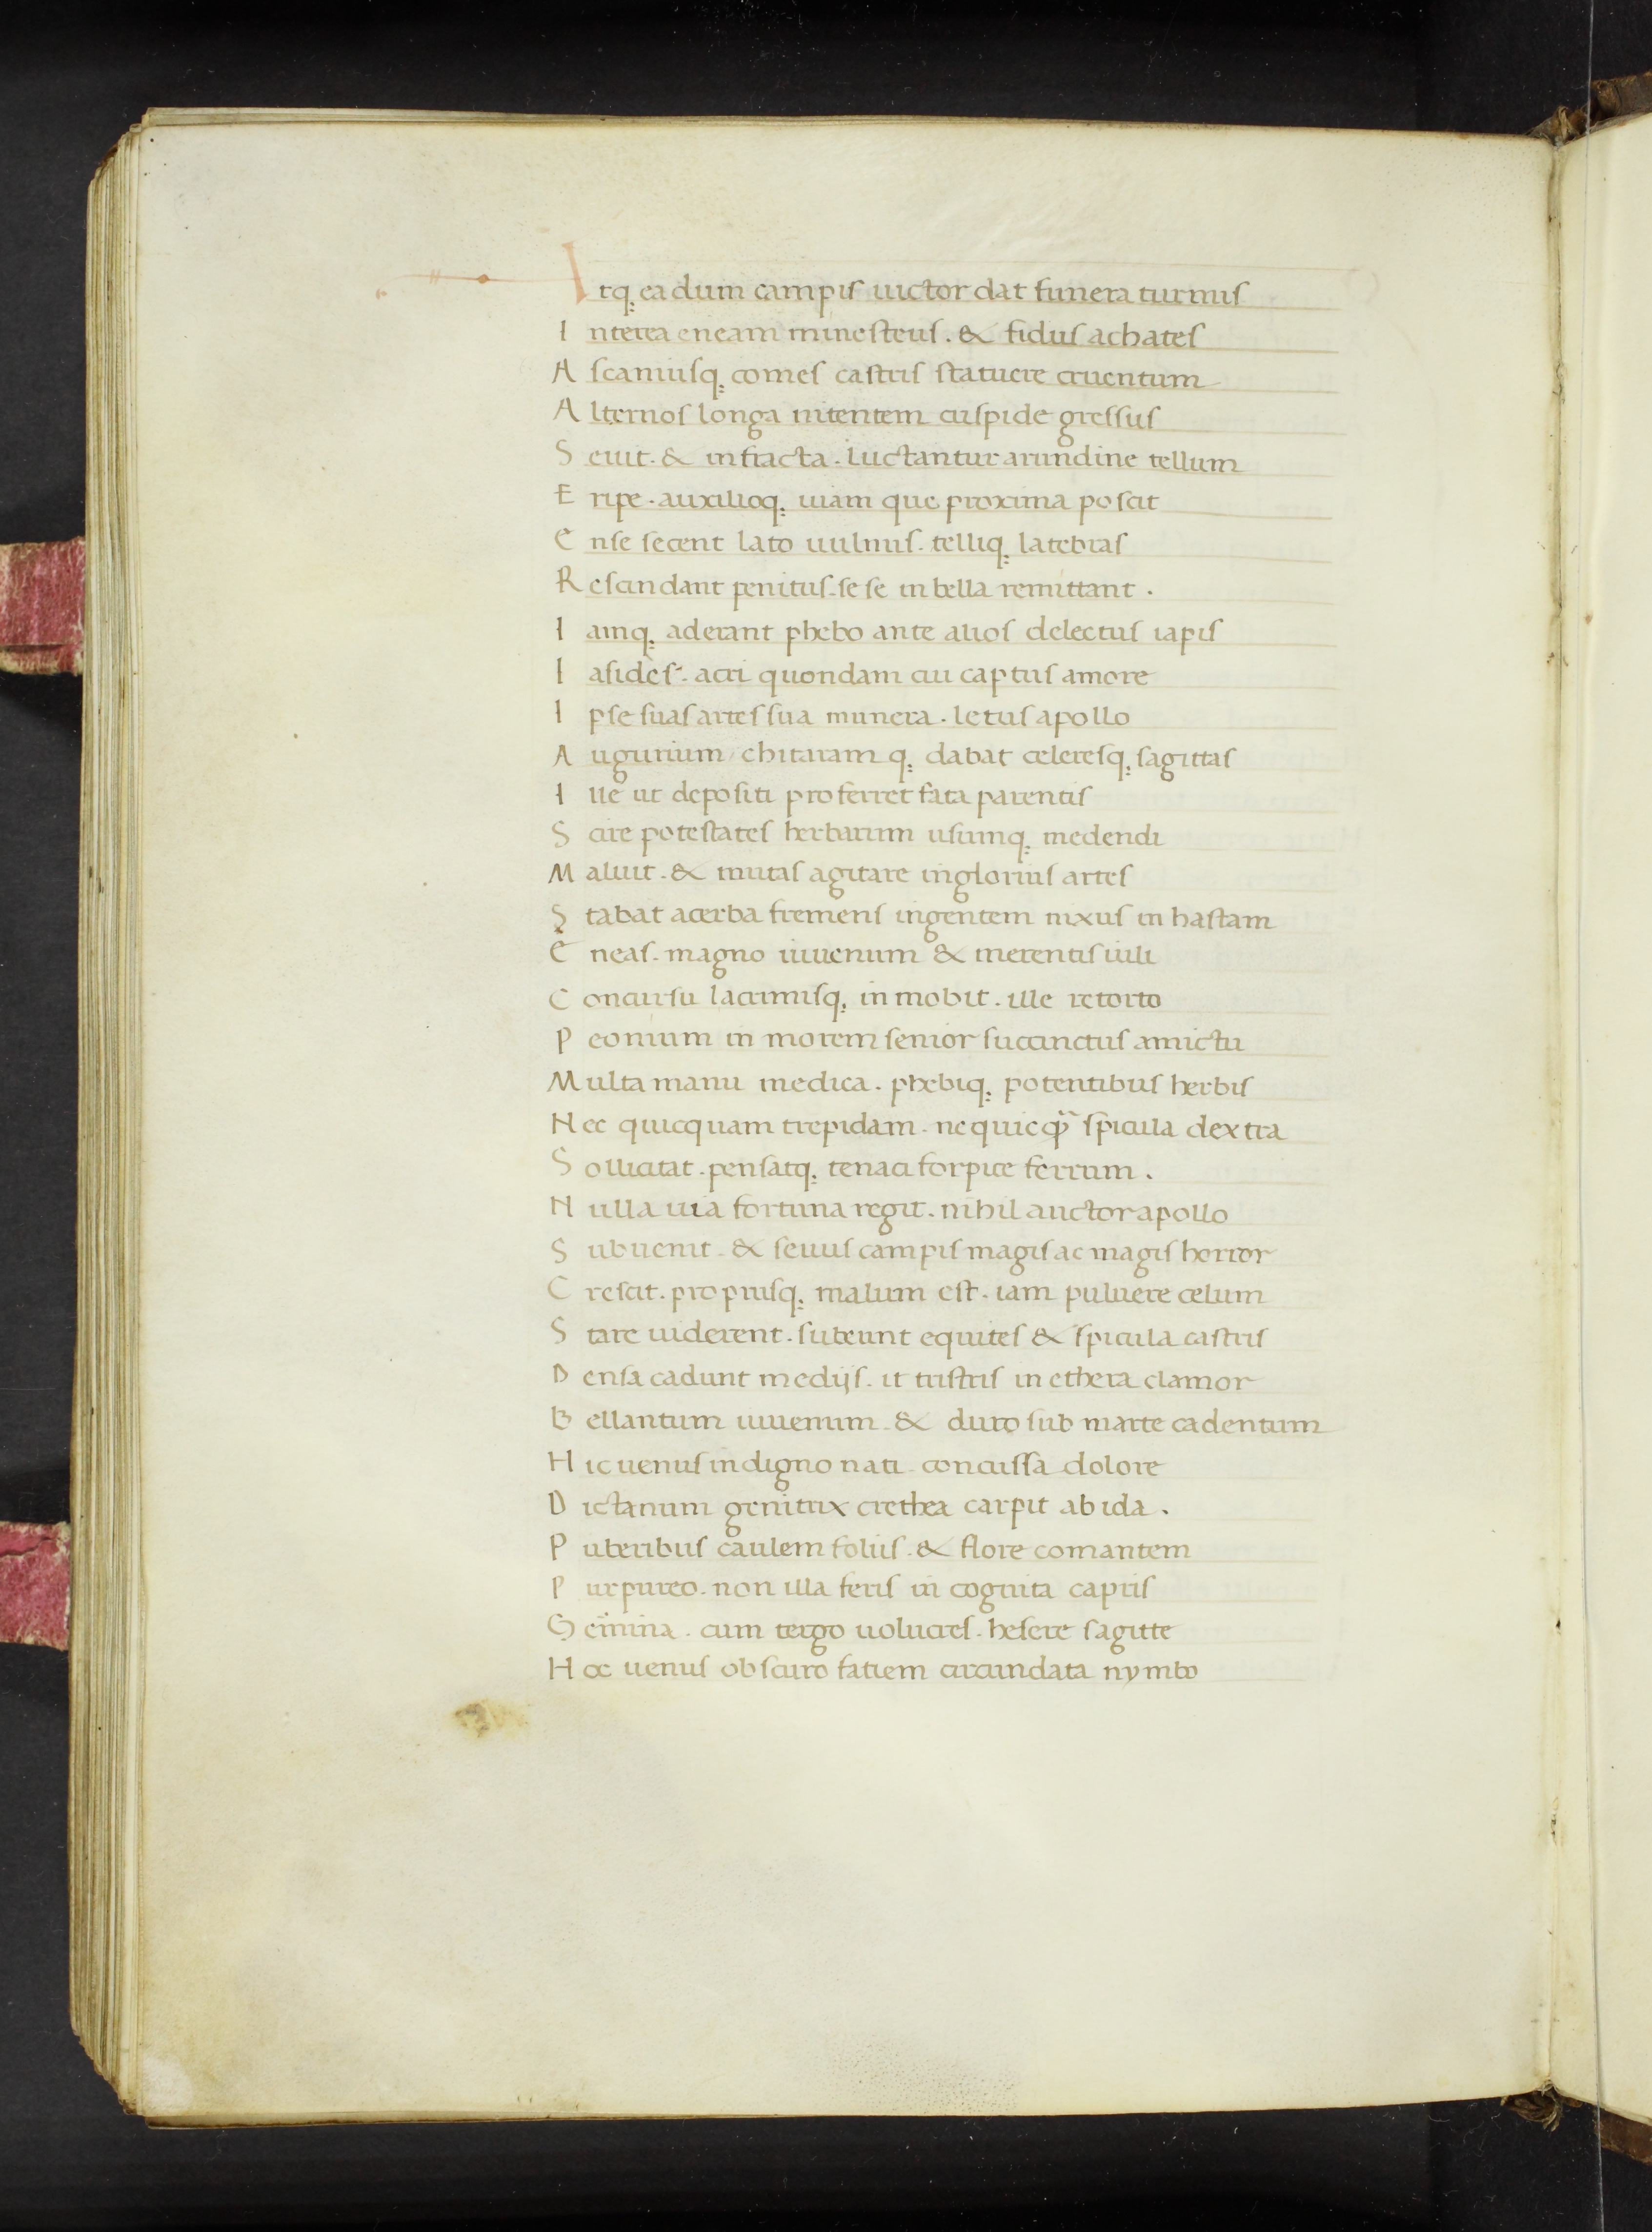 Atq; ea dum campis uictor dat funera turmis
Interea eneam minesteus. & fidus achates
Ascaniusq; comes castris statuere cruentum
Alternos longa nitentem cuspide gressus
Seuit. & infracta. luctantur arundine tellum
Eripe. auxilioq; uiam que proxima poscit
Ense secent lato uulnus. telliq; latebras
Rescindant penitus. sese in bella remittant.
Iamq; aderant phebo ante alios delectus iapis
Iasides. acri quondam cui captus amore
Ipse suas artes sua munera. letus apollo
Augurium chitaramq; dabat celeresq; sagittas
Ille ut depositi proferret fata parentis
Scire potestates herbarum usumq; medendi
Maluit. & mutas agitare inglorius artes
Stabat acerba fremens ingentem nixus in hastam
Eneas. magno iuuenum & merentis iuli
Concursu lacrimisq; in mobit. ille retorto
Peonium in morem senior succinctus amictu
Multa manu medica. phebiq; potentibus herbis
Nec quicquam trepidam. ne quicq̃ spicula dextra
Sollicitat. pensatq; tenaci forpice ferrum.
Nulla uia fortuna regit. nihil auctor apollo
Subuenit. & seuus campis magis ac magis horror
Crescit. propriusq; malum est. iam puluere celum
Stare uiderent. subeunt equites & spicula castris
Densa cadunt medijs. it tristris in ethera clamor
Bellantum iuuenum. & duro sub marte cadentum
Hic uenus indigno nati concussa dolore
Dictanum genitrix crethea carpit ab ida.
Puberibus caulem foliis. & flore comantem
Purpureo. non illa feris in cognita capris
Gemina. cum tergo uolucres. hesere sagitte
Hoc uenus obscuro fatiem circundata nymbo